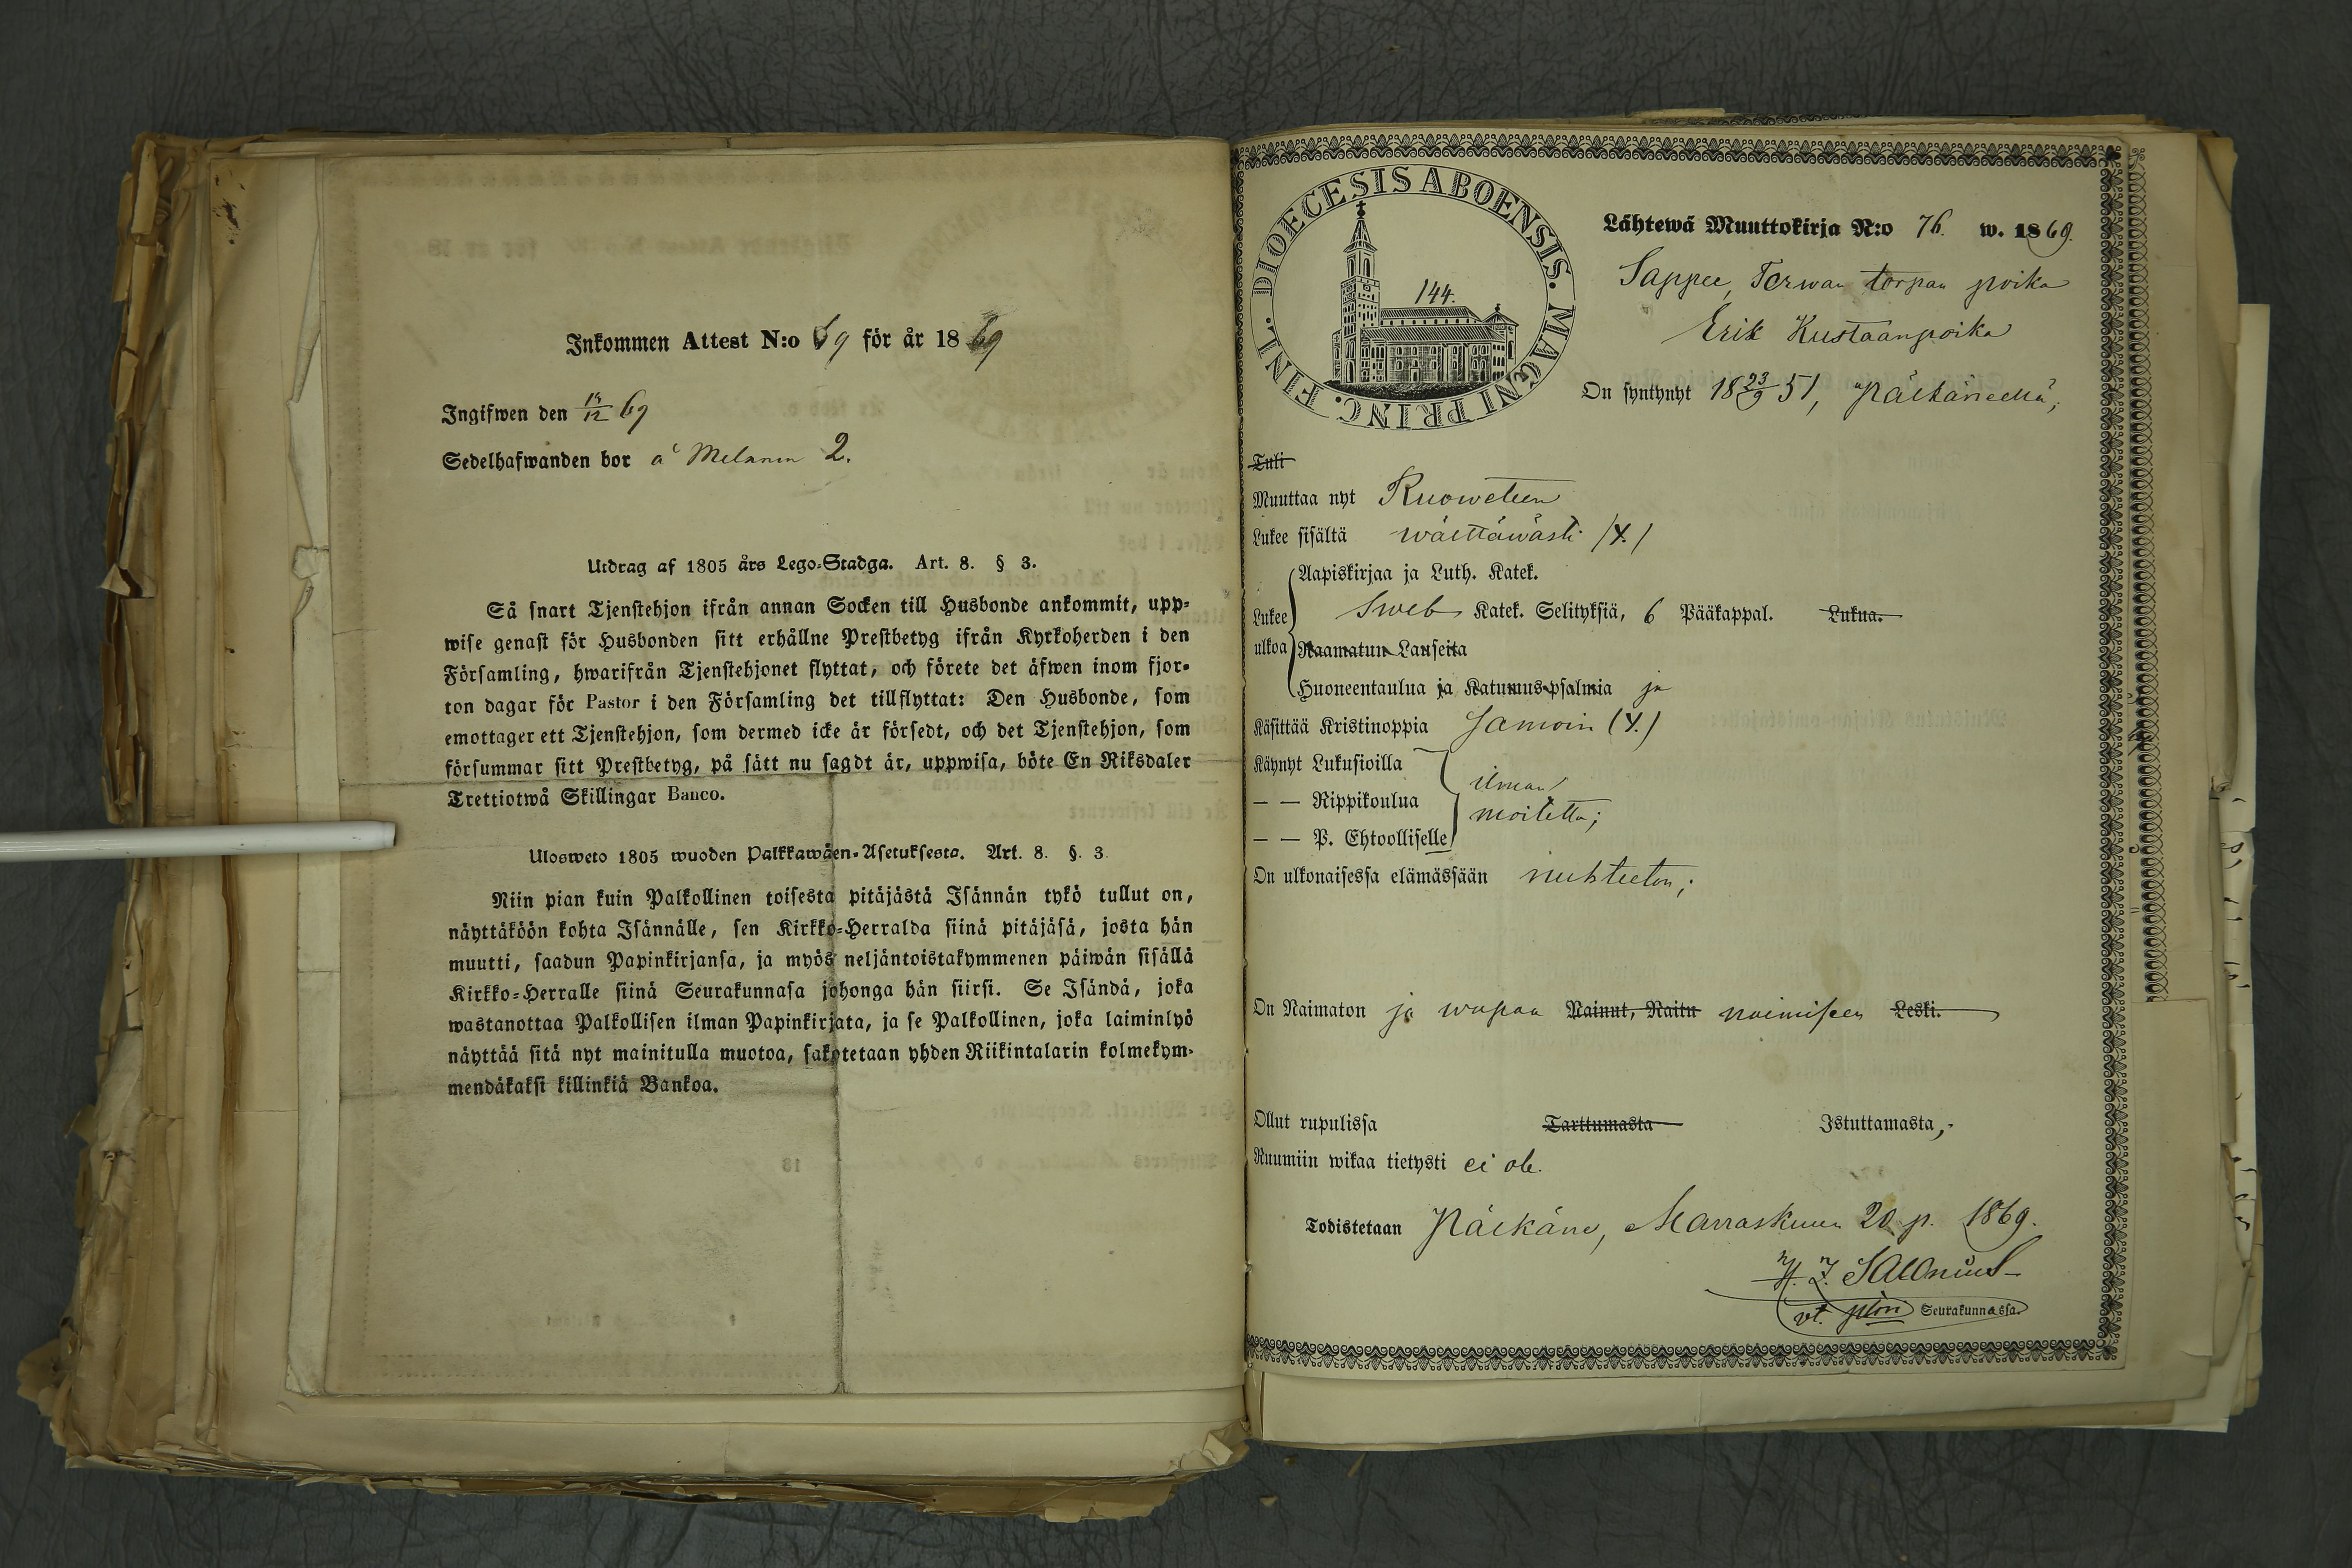 Inkommen Attest N:o 69 för år 1869
Ingifwen den 14/12 69
Sedelhafwanden bor å Melanen 2.
Utdrag af 1805 års Lego-Stadga. Art. 8. § 3.
Så snart Tjenstehjon ifrån annan Socken till Husbonde ankommit, upp-
wise genast för Husbonden sitt erhållne Prestbetyg ifrån Kyrkoherden i den
Församling, hwarifrån Tjenstehjonet flyttat, och förete det äfwen inom fjor-
ton dagar för Pastor i den Församling det tillflyttat: Den Husbonde, som
emottager ett Tjenstehjon, som dermed icke är försedt, och det Tjenstehjon, som
försummar sitt Prestbetyg, på sätt nu sagdt är, uppwisa, böte En Riksdaler
Trettiotwå Skillingar Banco.
Ulosweto 1805 wuoden Palkkawäen-Asetuksesta. Art. 8. §. 3.
Niin pian kuin Palkollinen toisesta pitäjästä Isännän tykö tullut on,
näyttäköön kohta Isännälle, sen Kirkko-Herralda siinä pitäjäsä, josta hän
muutti, saadun Papinkirjansa, ja myös neljäntoistakymmenen päiwän sisällä
Kirkko-Herralle siinä Seurakunnasa johonga hän siirsi. Se Isändä, joka
wastanottaa Palkollisen ilman Papinkirjata, ja se Palkollinen, joka laiminlyö
näyttää sitä nyt mainitulla muotoa, sakotetaan yhden Riikintalarin kolmekym-
mendäkaksi killinkiä Bankoa.
DIOECESIS ABOENSIS. MAGNI PRINC. FINL.
144.
Lähtewä Muuttokirja N:o 76. w. 1869.
Sappee, Terwan torpan poika
Erik Kustaanpoika
On syntynyt 18 23/9 51, Pälkäneellä;
Tuli
Muuttaa nyt Ruoweteen
Lukee sisältä wälttäwästi (x.)
Aapiskirjaa ja Luth. Katek.
Lukee Sweb Katek. Selityksiä, 6 Pääkappal. Lukua.
ulkoa Raamatun Lauseita
Huoneentaulua ja Katumus-psalmia ja
Käsittää Kristinoppia samoin (x.)
Käynyt Lukusioilla
ilman
— — Rippikoulua
moitetta;
— — P. Ehtoolliselle
On ulkonaisessa elämässään nuhteeton;
On Naimaton ja wapaa Nainut, Naitu naimiseen Leski.
Ollut rupulissa Tarttumasta Istuttamasta,-
Ruumiin wikaa tietysti ei ole.
Todistetaan Pälkäne, Marraskuun 20 p. 1869.
Salonius
vt. Seurakunnassa.